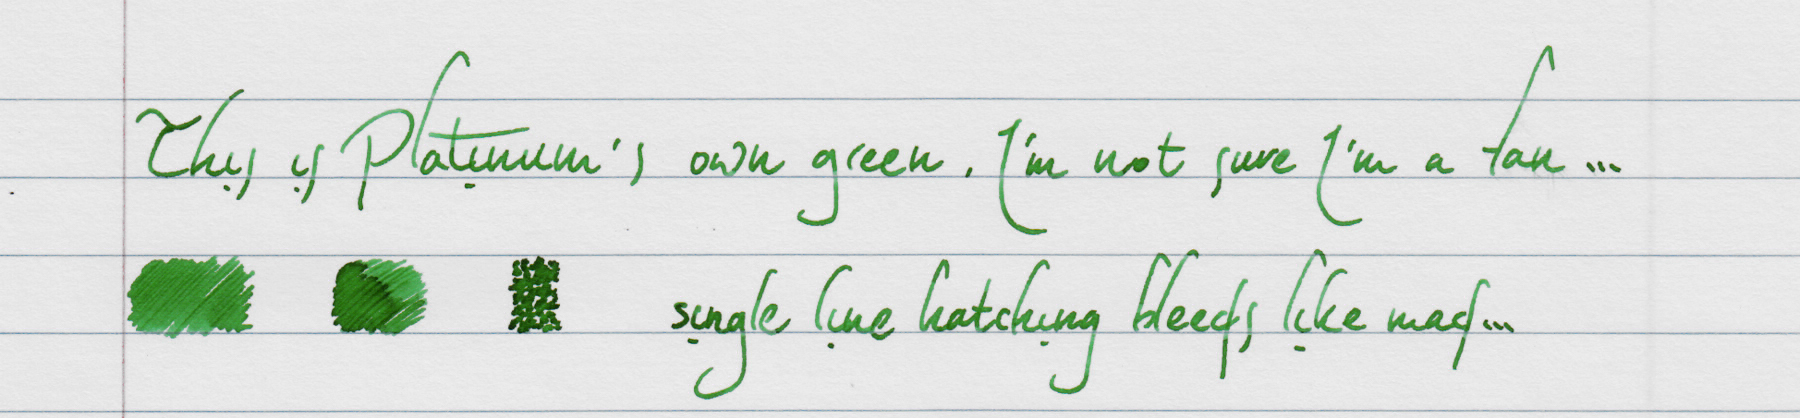 This is Platinum's own green. I'm not sure I'm a fan...
single line hatching bleeds like mad...